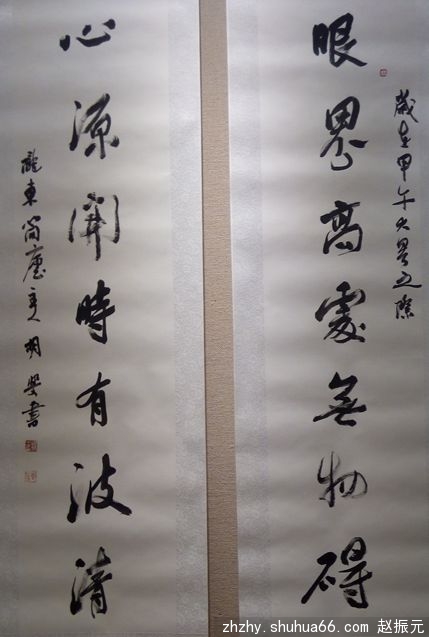 歲在甲午大暑之際
眼界高處無物礙
心源開時有波清
隴東簡廬主人胡嬰書
zhzhy.shuhua66.com 赵振元